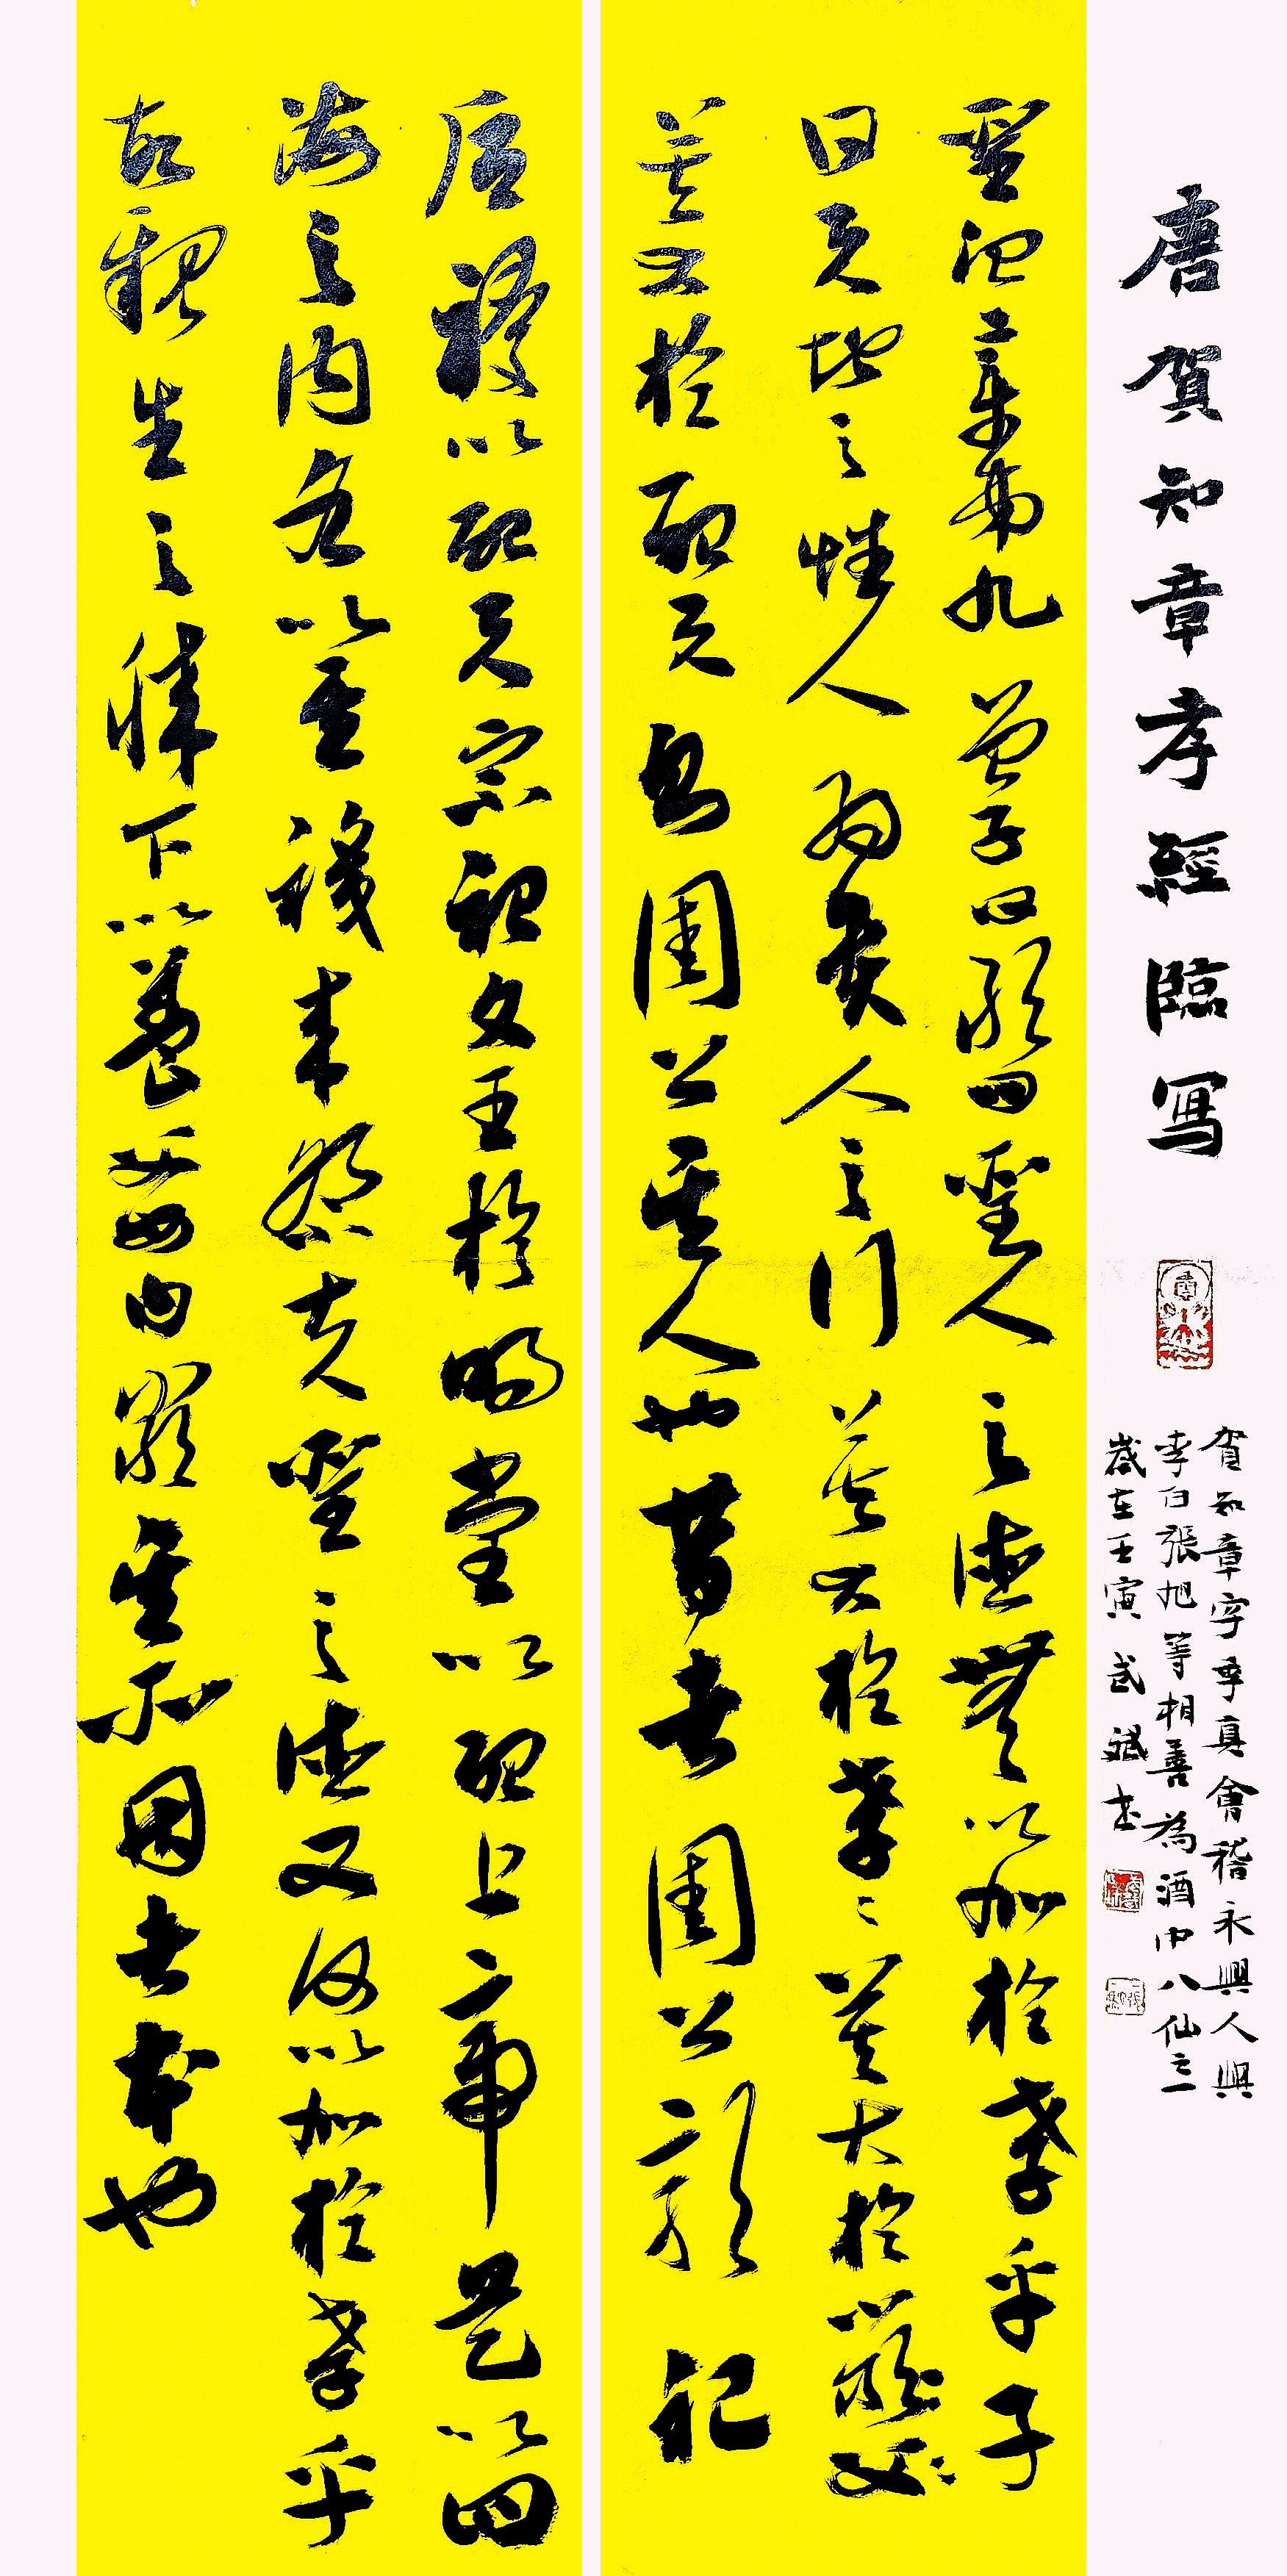 唐賀知章孝經臨寫
賀知章字季真會稽永興人與
李白張旭等相善為酒中八仙之一
歲在壬寅 武斌書
聖治章第九 曾子曰敢問聖人之德無以加於孝乎子
曰天地之性人為貴人之行莫大於孝〻莫大於嚴〻父〻
莫大於配天則周公其人也昔者周公郊祀
后稷以配天宗祀文王於明堂以配上帝是以四
海之內各以其職來祭夫聖之德又何以加於孝乎
故親生之膝下以養父母日嚴其所因者本也